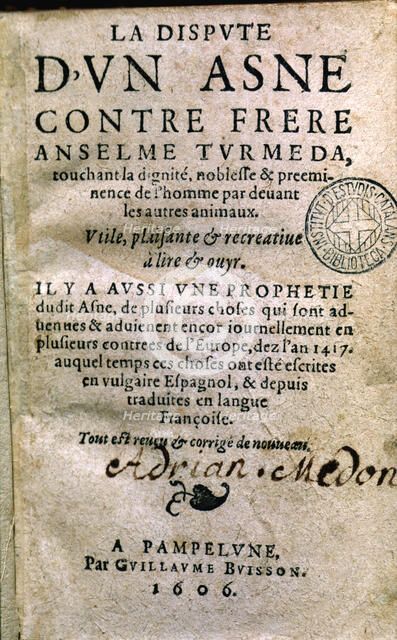 LA DISPVTE
D'VN ASNE
CONTRE FRERE
ANSELME TVRMEDA,
touchant la dignité, noblesse & preemi-
nence de l'homme par deuant
les autres animaux.
Vtile, plaisante & recreatiue
à lire & ouyr.
INSTITVT D'ESTVDIS CATALANS
BIBLIOTECA
IL Y A AVSSI VNE PROPHETIE
dudit Asne, de plusieurs choses qui sont ad-
uenues & aduienent encor iournellement en
plusieurs contrees de l'Europe, dez l'an 1417.
auquel temps ces choses ont esté escrites
en vulgaire Espagnol, & depuis
traduites en langue
Françoise.
Tout est reueu & corrigé de nouueau.
Adrian. Medon
A PAMPELVNE,
Par GVILLAVME BVISSON.
1606.
Heritage
Heritage
Heritage